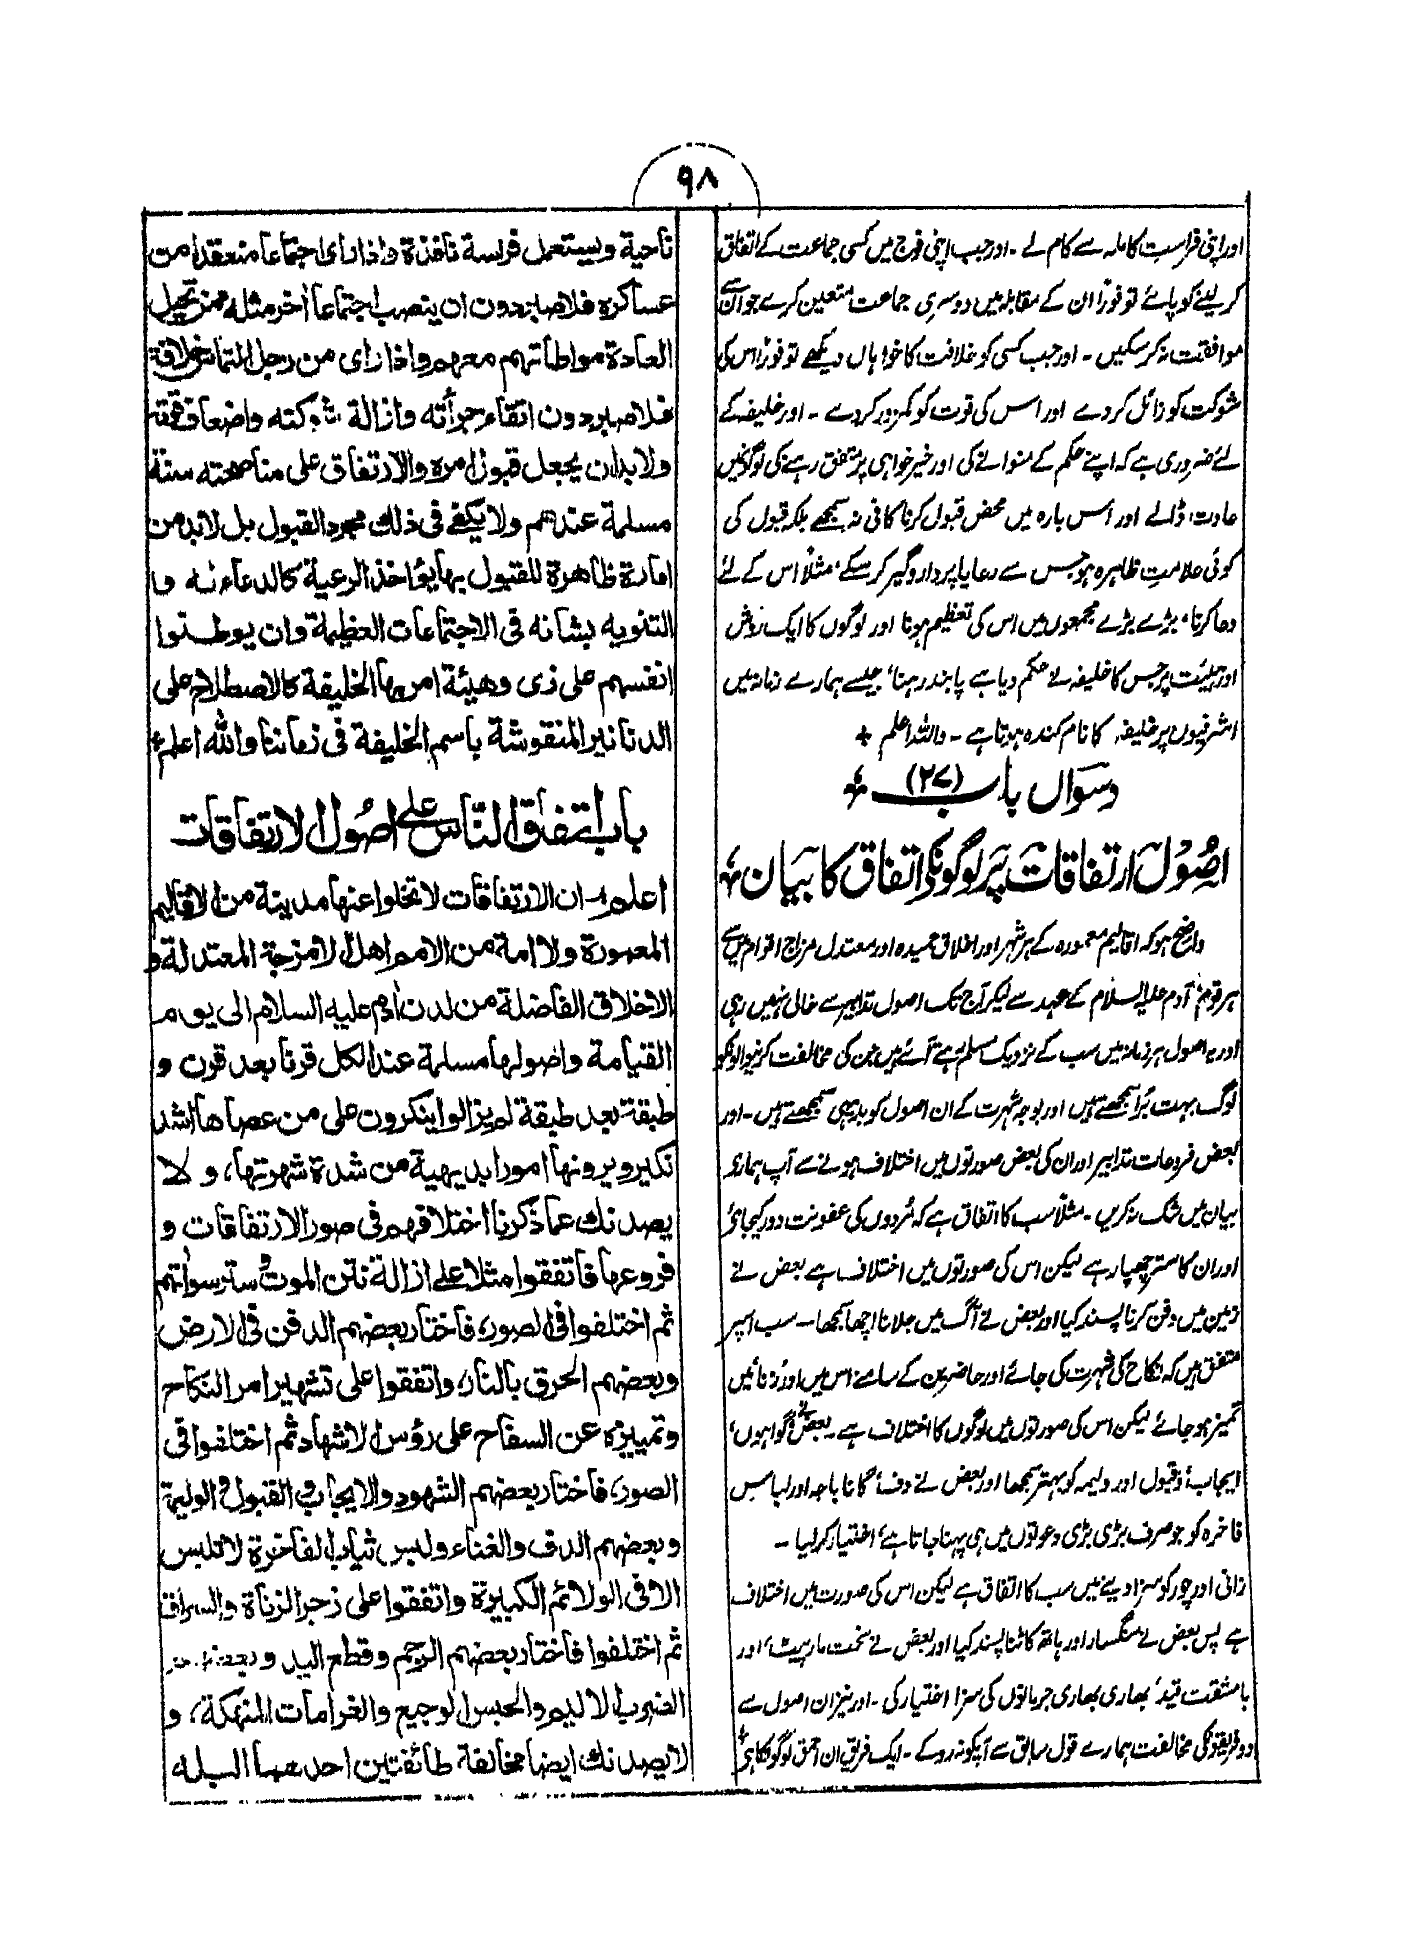 ۹۸
اور اپنی فراست کاملہ سے کام لے ۔ اور جب اپنی فوج میں کسی جماعت کے اتفاق
کر لینے کو پائے تو فورًا ان کے مقابلہ میں دوسری جماعت متعین کرے جو ان سے
موافقت نہ کر سکیں ۔ اور جب کسی کو خلافت کا خواہاں دیکھے تو فورًا اس کی
شوکت کو زائل کر دے اور اس کی قوت کو کمزور کر دے ۔ اور خلیفہ کے
لئے ضروری ہے کہ اپنے حکم کے منوانے کی اور خیر خواہی پر متفق رہنے کی لوگوں میں
عادت ڈالے اور اس بارہ میں محض قبول کرنا کافی نہ سمجھے بلکہ قبول کی
کوئی علامتِ ظاہرہ ہو جس سے رعایا پر دار و گیر کر سکے، مثلًا اس کے لئے
دعا کرنا، بڑے بڑے مجمعوں میں اس کی تعظیم ہونا اور لوگوں کا ایک روش
اور ہیئت پر جس کا خلیفہ نے حکم دیا ہے پابند رہنا، جیسے ہمارے زمانہ میں
اشرفیوں پر خلیفہ کا نام کندہ ہوتا ہے ۔ واللہ اعلم +
دسواں باب (۲۷)
اصُول ارتفاقات پر لوگونکے اتفاق کا بیان
واضح ہو کہ اقالیم معمورہ کے ہر شہر اور اخلاق حمیدہ اور معتدل مزاج اقوام میں سے
ہر قوم آدم علیہ السلام کے عہد سے لیکر آج تک اصول تدابیر سے خالی نہیں رہی
اور یہ اصول ہر زمانہ میں سب کے نزدیک مسلم ہے آئے ہیں جن کی مخالفت کرنیوالونکو
لوگ بہت بُرا سمجھتے ہیں اور بوجہ شہرت کے ان اصول کو بدیہی سمجھتے ہیں ۔ اور
بعض فروعات تدابیر اور ان کی بعض صورتوں میں اختلاف ہونے سے آپ ہمارے
بیان میں شک نہ کریں ۔ مثلًا سب کا اتفاق ہے کہ مُردوں کی عفونت دور کیجائے
اور ان کا ستر چھپا رہے لیکن اس کی صورتوں میں اختلاف ہے بعض نے
زمین میں دفن کرنا پسند کیا اور بعض نے آگ میں جلانا اچھا سمجھا ۔ سب اسپر
متفق ہیں کہ نکاح کی شہرت کی جائے اور حاضرین کے سامنے اس میں اور زنا میں
تمیز ہو جائے لیکن اس کی صورتوں میں لوگوں کا اختلاف ہے ۔ بعض نے گواہوں،
ایجاب و قبول اور ولیمہ کو بہتر سمجھا اور بعض نے دف، گانا باجہ اور لباس
فاخرہ کو جو صرف بڑی بڑی دعوتوں میں ہی پہنا جاتا ہے، اختیار کر لیا ۔
زانی اور چور کو سزا دینے میں سب کا اتفاق ہے لیکن اس کی صورت میں اختلاف
ہے پس بعض نے سنگسار اور ہاتھ کاٹنا پسند کیا اور بعض نے سخت مارپیٹ، اور
با مشقت قید، بھاری بھاری جرمانوں کی سزا اختیار کی ۔ اور نیز ان اصول سے
دو فریقونکی مخالفت ہمارے قول سابق سے آپکو نہ روکے ۔ ایک فریق ان احمق لوگونکا ہے
ناحية ويستعمل فراسة نافذة واذا رأى اجتماعا منعقدا من
عساكره فلا صبر دون ان ينصب اجتماعا اٰخر مثله ممن تحيل
العادة مواطأتهم معهم واذا رأى من رجل التماس خلافة
فلا صبر دون اتقاء جرأته وازالة شوكته واضعاف قوته
ولا بد ان يجعل قبول امره والارتفاق على مناصحته سنة
مسلمة عندهم ولا يكفى فى ذلك مجرد القبول بل لابد من
امارة ظاهرة للقبول بها يؤاخذ الرعية كالدعاء له و
التنويه بشانه فى الاجتماعات العظيمة وان يوطنوا
انفسهم على زى وهيئة امر بها الخليفة كالاصطلاح على
الدنانير المنقوشة باسم الخليفة فى زماننا والله اعلم
باب اتفاق النّاس على اصُول الارتفاقات
اعلم ان الارتفاقات لا تخلوا عنها مدينة من الاقاليم
المعمورة ولا امة من الامم اهل الامزجة المعتدلة و
الاخلاق الفاضلة من لدن اٰدم عليه السلام الى يوم
القيامة واصولها مسلمة عند الكل قرنا بعد قرن و
طبقة بعد طبقة لم يزالوا ينكرون على من عصاها اشد
نكير ويرونها امورا بديهية من شدة شهرتها، و لا
يصدنك عما ذكرنا اختلافهم فى صور الارتفاقات و
فروعها فاتفقوا مثلا على ازالة نتن الموتٰى و ستر سواٰتهم
ثم اختلفوا فى الصور، فاختار بعضهم الدفن فى الارض
وبعضهم الحرق بالنار، واتفقوا على تشهير امر النكاح
وتمييزه عن السفاح على رؤس الاشهاد ثم اختلفوا فى
الصور، فاختار بعضهم الشهود والايجاب و القبول و الوليمة
وبعضهم الدف والغناء ولبس ثياب الفاخرة لا تلبس
الا فى الولائم الكبيرة واتفقوا على زجر الزناة والسراق
ثم اختلفوا فاختار بعضهم الرجم وقطع اليد وبعضهم
الضرب الاليم والحبس الوجيع والغرامات المنهكة، و
لا يصدنك ايضا مخالفة طائفتين احدهما البله